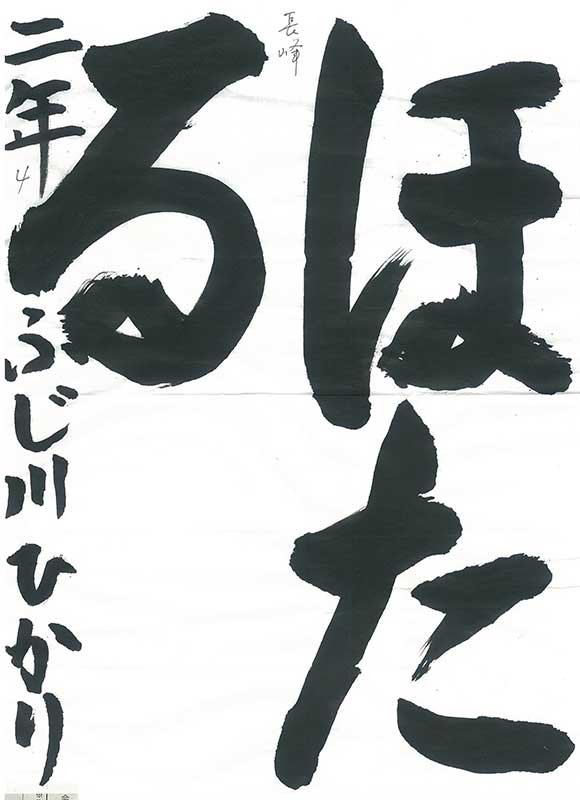 ほた
る
長峰
二年 ふじ川ひかり
4